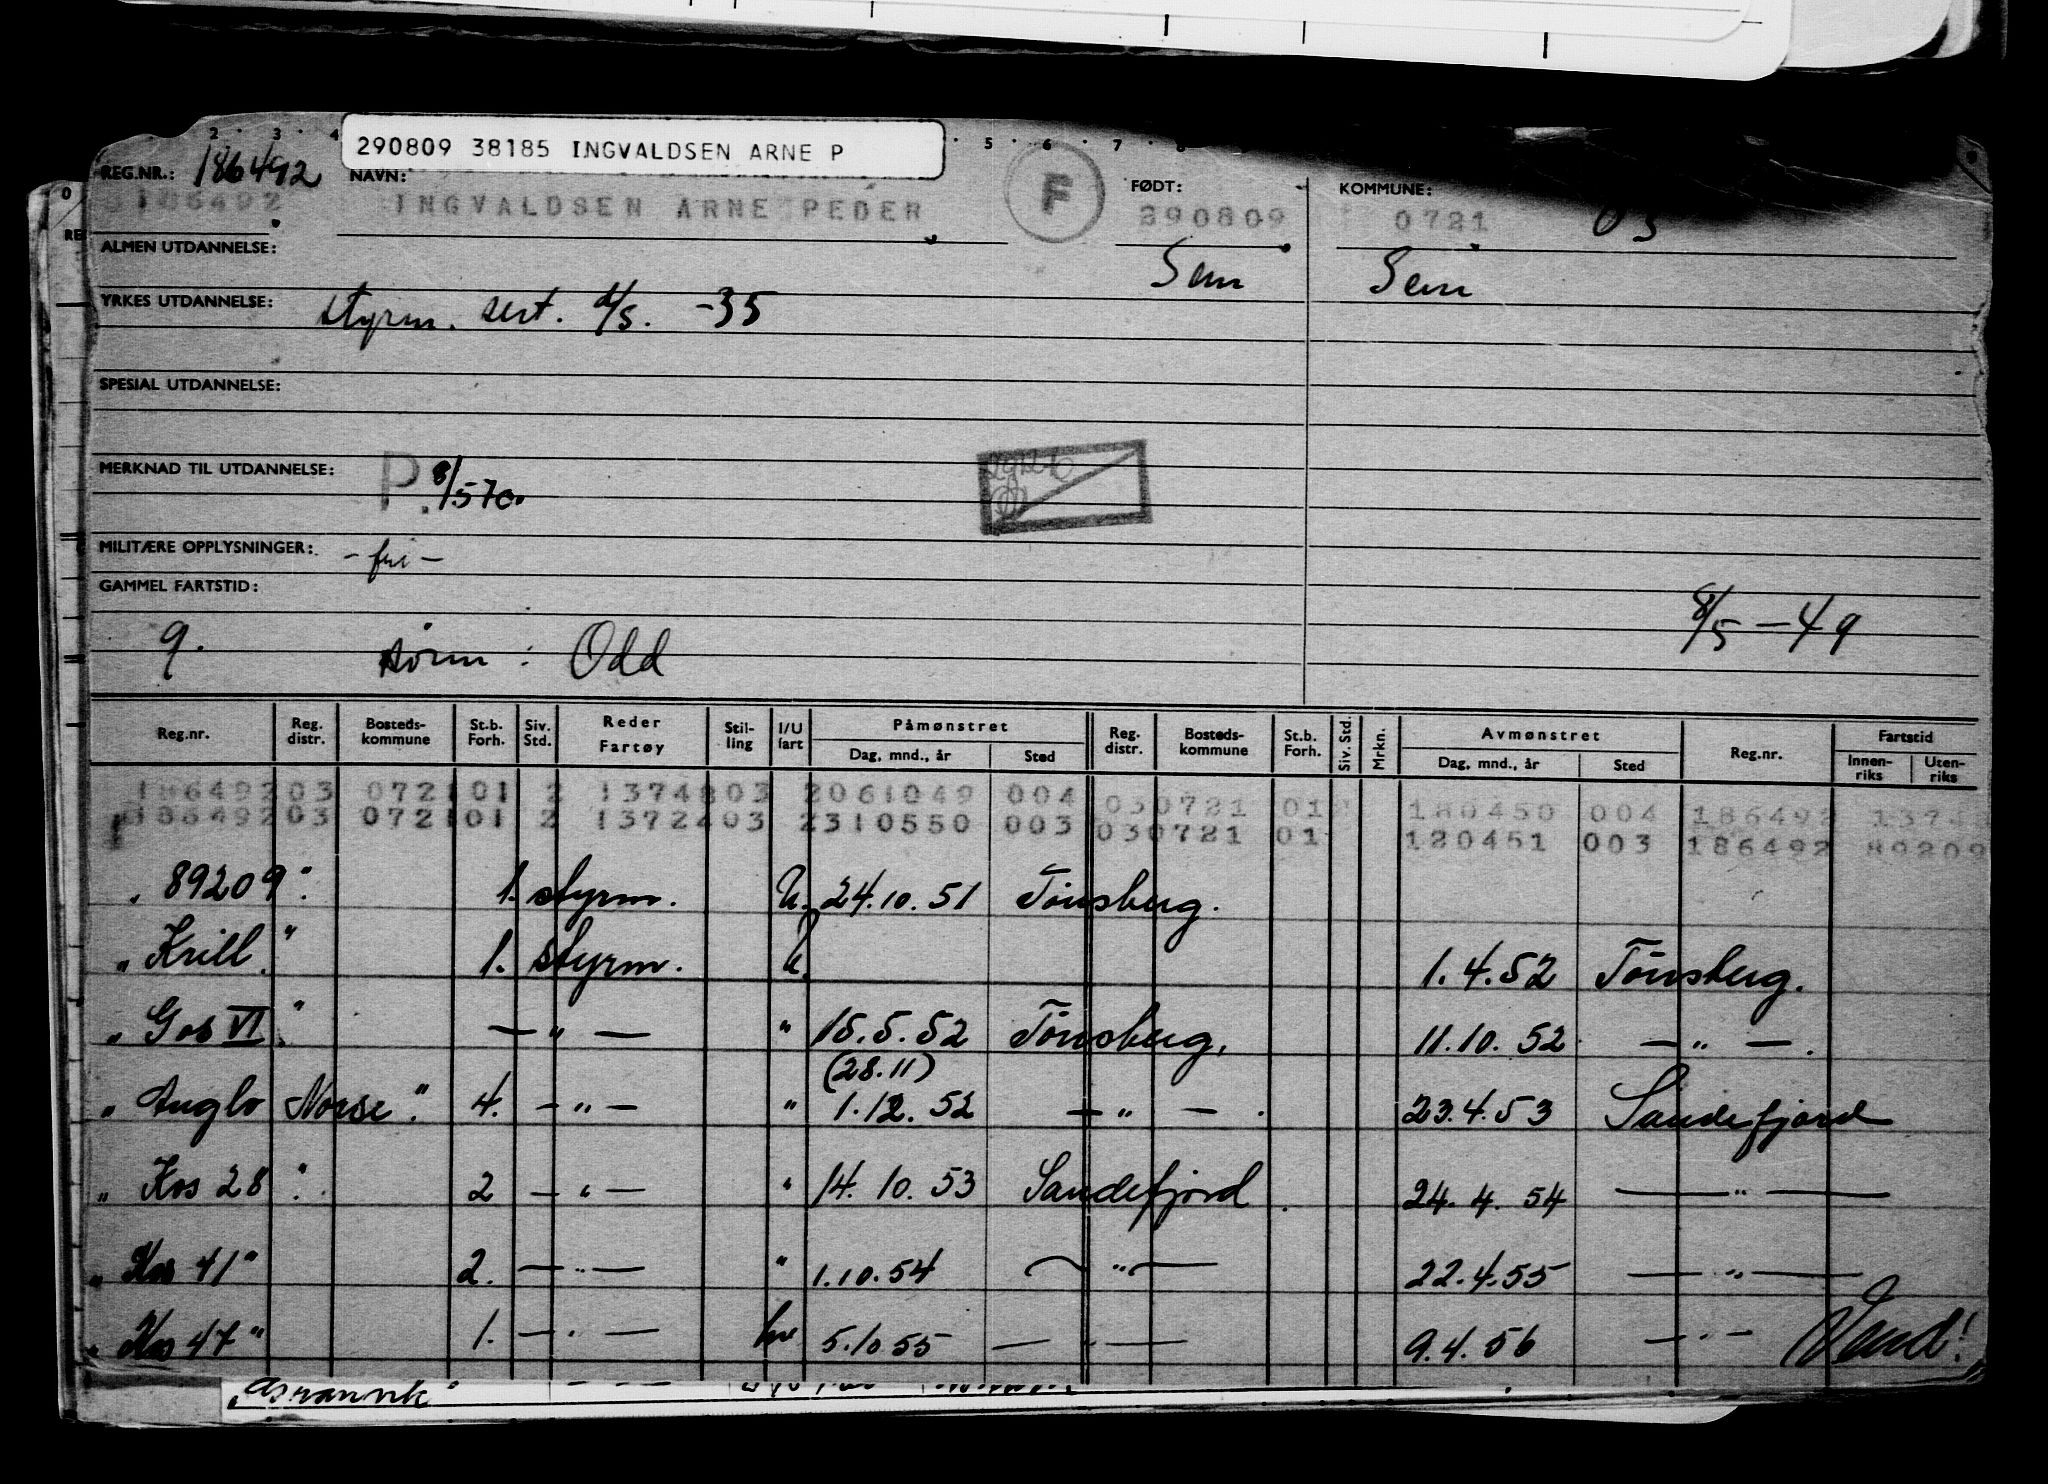 290809 38185 INGVALDSEN ARNE P
REG.NR.: 186492 NAVN: FØDT: KOMMUNE:
186492 INGVALDSEN ARNE PEDER F 290809 0721 03
ALMEN UTDANNELSE: Sem Sem
YRKES UTDANNELSE: styrm. sert. /5. -35
SPESIAL UTDANNELSE:
MERKNAD TIL UTDANNELSE: P. 8/5 70.
MILITÆRE OPPLYSNINGER: - fri -
GAMMEL FARTSTID: 8/5 - 49
9. sønn : Odd
Reg.nr. Reg. distr. Bosteds-kommune St.b. Forh. Siv. Std. Reder Fartøy Stil-ling I/U fart Påmønstret Reg. distr. Bosteds-kommune St.b. Forh. Siv. Std. Mrkn. Avmønstret Reg.nr. Fartstid
Dag, mnd., år Sted Dag, mnd., år Sted Innen-riks Uten-riks
186492 03 0721 01 2 1374803 2061049 004 030721 01 180450 004 186492 1374
186492 03 0721 01 2 1372403 2310550 003 030721 01 120451 003 186492 89209
" 89209 " 1. styrm. U. 24.10.51 Tönsberg.
" Krill " 1. styrm. U. 1.4.52 Tönsberg.
" Gos VI " — " — " 15.5.52 Tönsberg. 11.10.52 — " —.
(28.11)
" Anglo Norse " 4. — " — " 1.12.52 — " — . 23.4.53 Sandefjord
" Kos 28 " 2 — " — " 14.10.53 Sandefjord. 24.4.54 — " —
" Kos 41 " 2. — " — " 1.10.54 — " — 22.4.55 — " —
" Kos 47 " 1. — " — hv 5.10.55 — " — 9.4.56 — " — Vend!
"Brannvik"